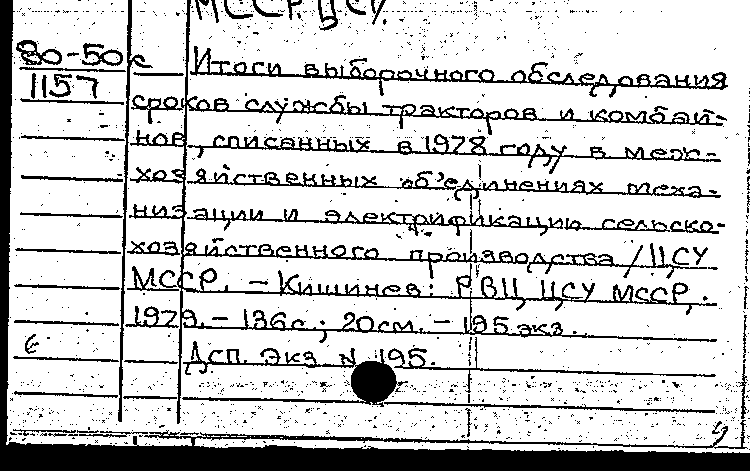 МССР. ЦСУ.
80-50 с Итоги выборочного обследования
1157
сроков службы тракторов и комбай-
нов, списанных в 1978 году в меж-
хозяйственных об'единениях меха-
низации и электрификации сельско-
хозяйственного производства / ЦСУ
МССР. - Кишинев: РВЦ ЦСУ МССР,
1979. - 136с.; 20см. - 195 экз.
Дсп. Экз. N 195.